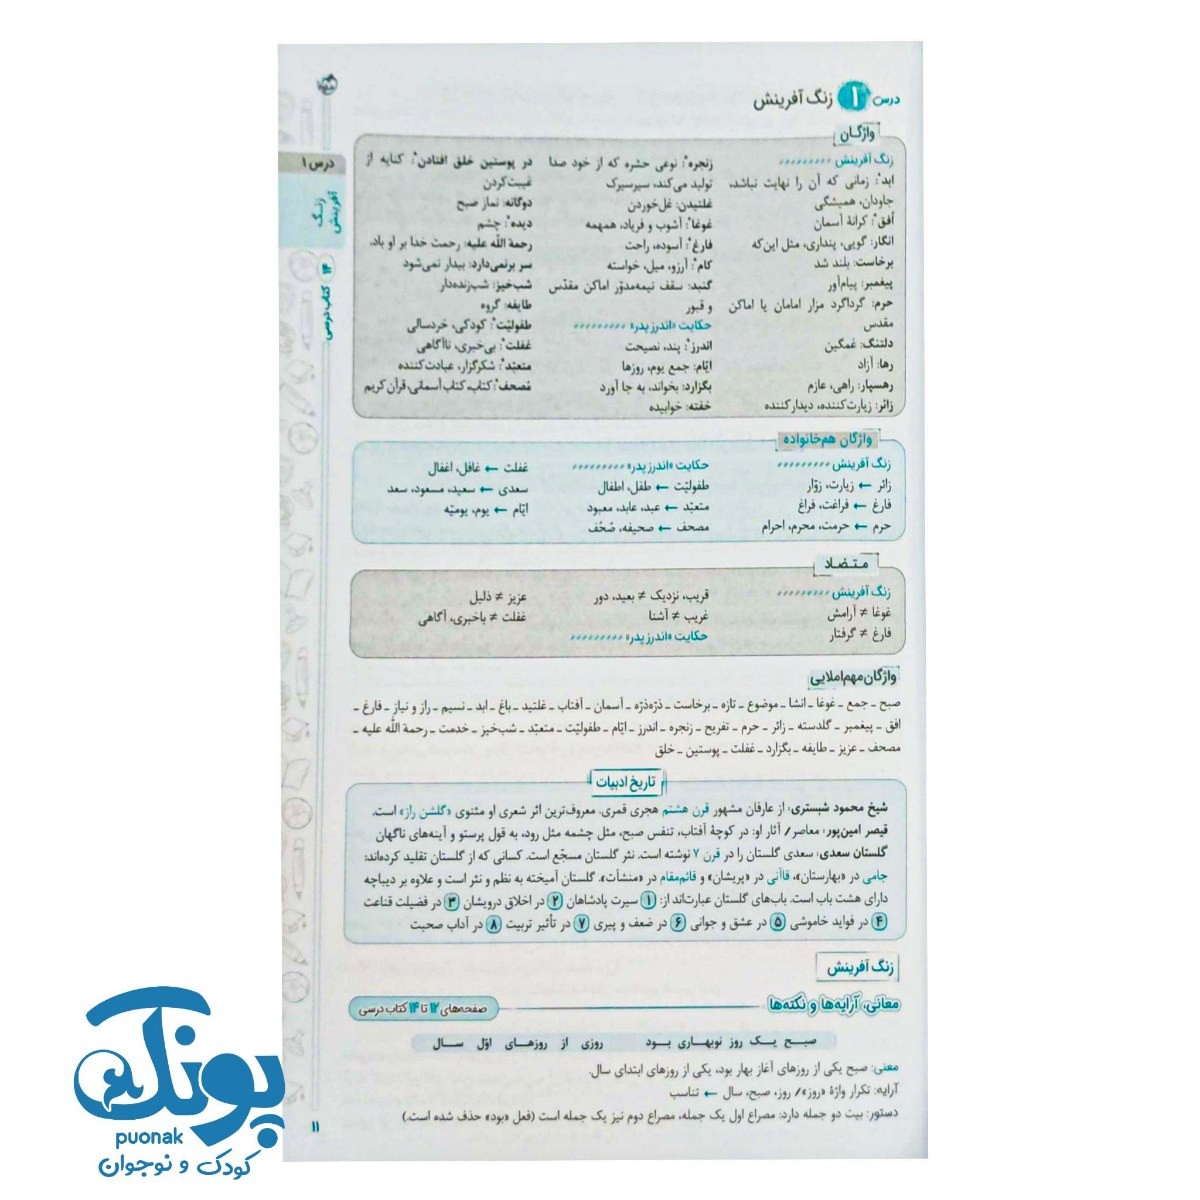 درس ۱ زنگ آفرینش
واژگان
زنگ آفرینش
ابد*: زمانی که آن را نهایت نباشد،
جاودان، همیشگی
اُفق*: کرانهٔ آسمان
انگار: گویی، پنداری، مثل این‌که
برخاست: بلند شد
پیغمبر: پیام‌آور
حرم: گرداگرد مزار امامان یا اماکن
مقدس
دلتنگ: غمگین
رها: آزاد
رهسپار: راهی، عازم
زائر: زیارت‌کننده، دیدارکننده
زنجره*: نوعی حشره که از خود صدا
تولید می‌کند، سیرسیرک
غلتیدن: غل‌خوردن
غوغا*: آشوب و فریاد، همهمه
فارغ*: آسوده، راحت
کام*: آرزو، میل، خواسته
گنبد: سقف نیمه‌مدوّر اماکن مقدّس
و قبور
حکایت «اندرز پدر»
اندرز*: پند، نصیحت
ایّام: جمع یوم، روزها
بگزارد: بخواند، به جا آورد
خفته: خوابیده
در پوستین خلق افتادن*: کنایه از
غیبت‌کردن
دوگانه: نماز صبح
دیده*: چشم
رحمة اللّٰه علیه: رحمت خدا بر او باد.
سر برنمی‌دارد: بیدار نمی‌شود
شب‌خیز: شب‌زنده‌دار
طایفه: گروه
طفولیّت*: کودکی، خردسالی
غفلت*: بی‌خبری، ناآگاهی
متعبّد*: شکرگزار، عبادت‌کننده
مُصحف*: کتاب، کتاب آسمانی، قرآن کریم
واژگان هم‌خانواده
زنگ آفرینش
زائر ← زیارت، زوّار
فارغ ← فراغت، فراغ
حرم ← حرمت، محرم، احرام
حکایت «اندرز پدر»
طفولیّت ← طفل، اطفال
متعبّد ← عبد، عابد، معبود
مصحف ← صحیفه، صُحُف
غفلت ← غافل، اغفال
سعدی ← سعید، مسعود، سعد
ایّام ← یوم، یومیّه
متضاد
زنگ آفرینش
غوغا ≠ آرامش
فارغ ≠ گرفتار
قریب، نزدیک ≠ بعید، دور
غریب ≠ آشنا
حکایت «اندرز پدر»
عزیز ≠ ذلیل
غفلت ≠ باخبری، آگاهی
واژگان مهم املایی
صبح ـ جمع ـ غوغا ـ انشا ـ موضوع ـ تازه ـ برخاست ـ ذرّه‌ذرّه ـ آسمان ـ آفتاب ـ غلتید ـ باغ ـ ابد ـ نسیم ـ راز و نیاز ـ فارغ ـ
افق ـ پیغمبر ـ گلدسته ـ زائر ـ حرم ـ تفریح ـ زنجره ـ اندرز ـ ایّام ـ طفولیّت ـ متعبّد ـ شب‌خیز ـ خدمت ـ رحمة اللّٰه علیه ـ
مصحف ـ عزیز ـ طایفه ـ بگزارد ـ غفلت ـ پوستین ـ خلق
تاریخ ادبیات
شیخ محمود شبستری: از عارفان مشهور قرن هشتم هجری قمری. معروف‌ترین اثر شعری او مثنوی «گلشن راز» است.
قیصر امین‌پور: معاصر/ آثار او: در کوچهٔ آفتاب، تنفس صبح، مثل چشمه مثل رود، به قول پرستو و آینه‌های ناگهان
گلستان سعدی: سعدی گلستان را در قرن ۷ نوشته است. نثر گلستان مسجّع است. کسانی که از گلستان تقلید کرده‌اند:
جامی در «بهارستان»، قاآنی در «پریشان» و قائم‌مقام در «منشآت». گلستان آمیخته به نظم و نثر است و علاوه بر دیباچه
دارای هشت باب است. باب‌های گلستان عبارت‌اند از: ۱ سیرت پادشاهان ۲ در اخلاق درویشان ۳ در فضیلت قناعت
۴ در فواید خاموشی ۵ در عشق و جوانی ۶ در ضعف و پیری ۷ در تأثیر تربیت ۸ در آداب صحبت
زنگ آفرینش
معانی، آرایه‌ها و نکته‌ها
صفحه‌های ۱۲ تا ۱۴ کتاب درسی
صبح یک روز نوبهاری بود روزی از روزهای اوّل سال
معنی: صبح یکی از روزهای آغاز بهار بود، یکی از روزهای ابتدای سال.
آرایه: تکرار واژهٔ «روز»/ روز، صبح، سال ← تناسب
دستور: بیت دو جمله دارد: مصراع اول یک جمله، مصراع دوم نیز یک جمله است (فعل «بود» حذف شده است.)
درس ۱
زنگ آفرینش
۱۴ کتاب درسی
۱۱
پونک
puonak
کودک و نوجوان